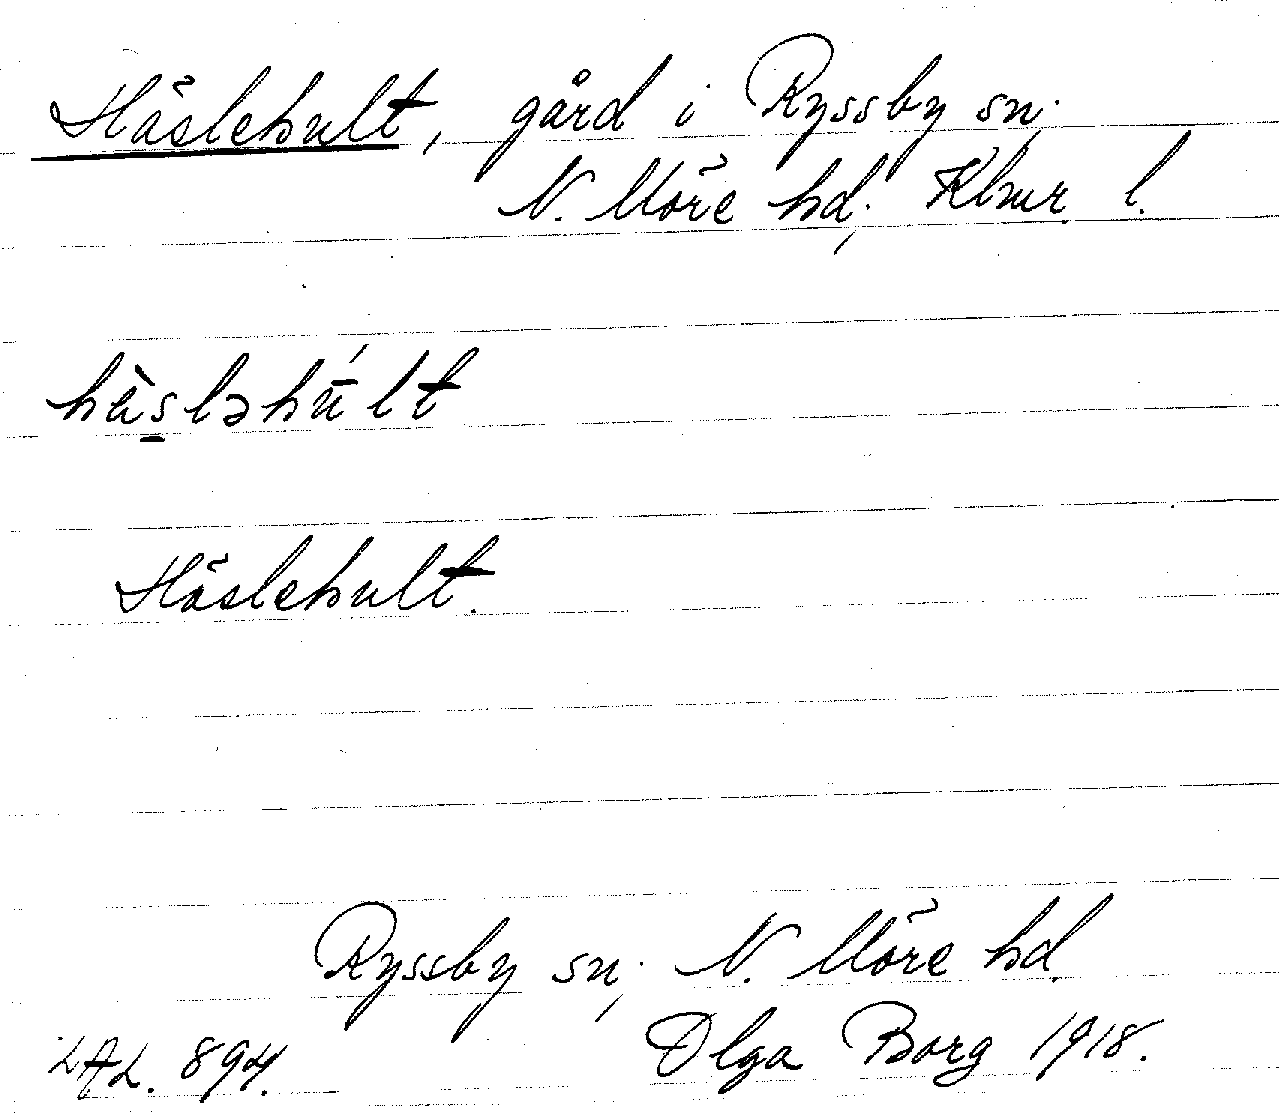 Häslehult, gård i Ryssby sn;
N. Möre hd; Klmr. l.
hä̀sləhú̄lt
Häslehult.
Ryssby sn; N. Möre hd.
LAL. 894. Olga Borg 1918.